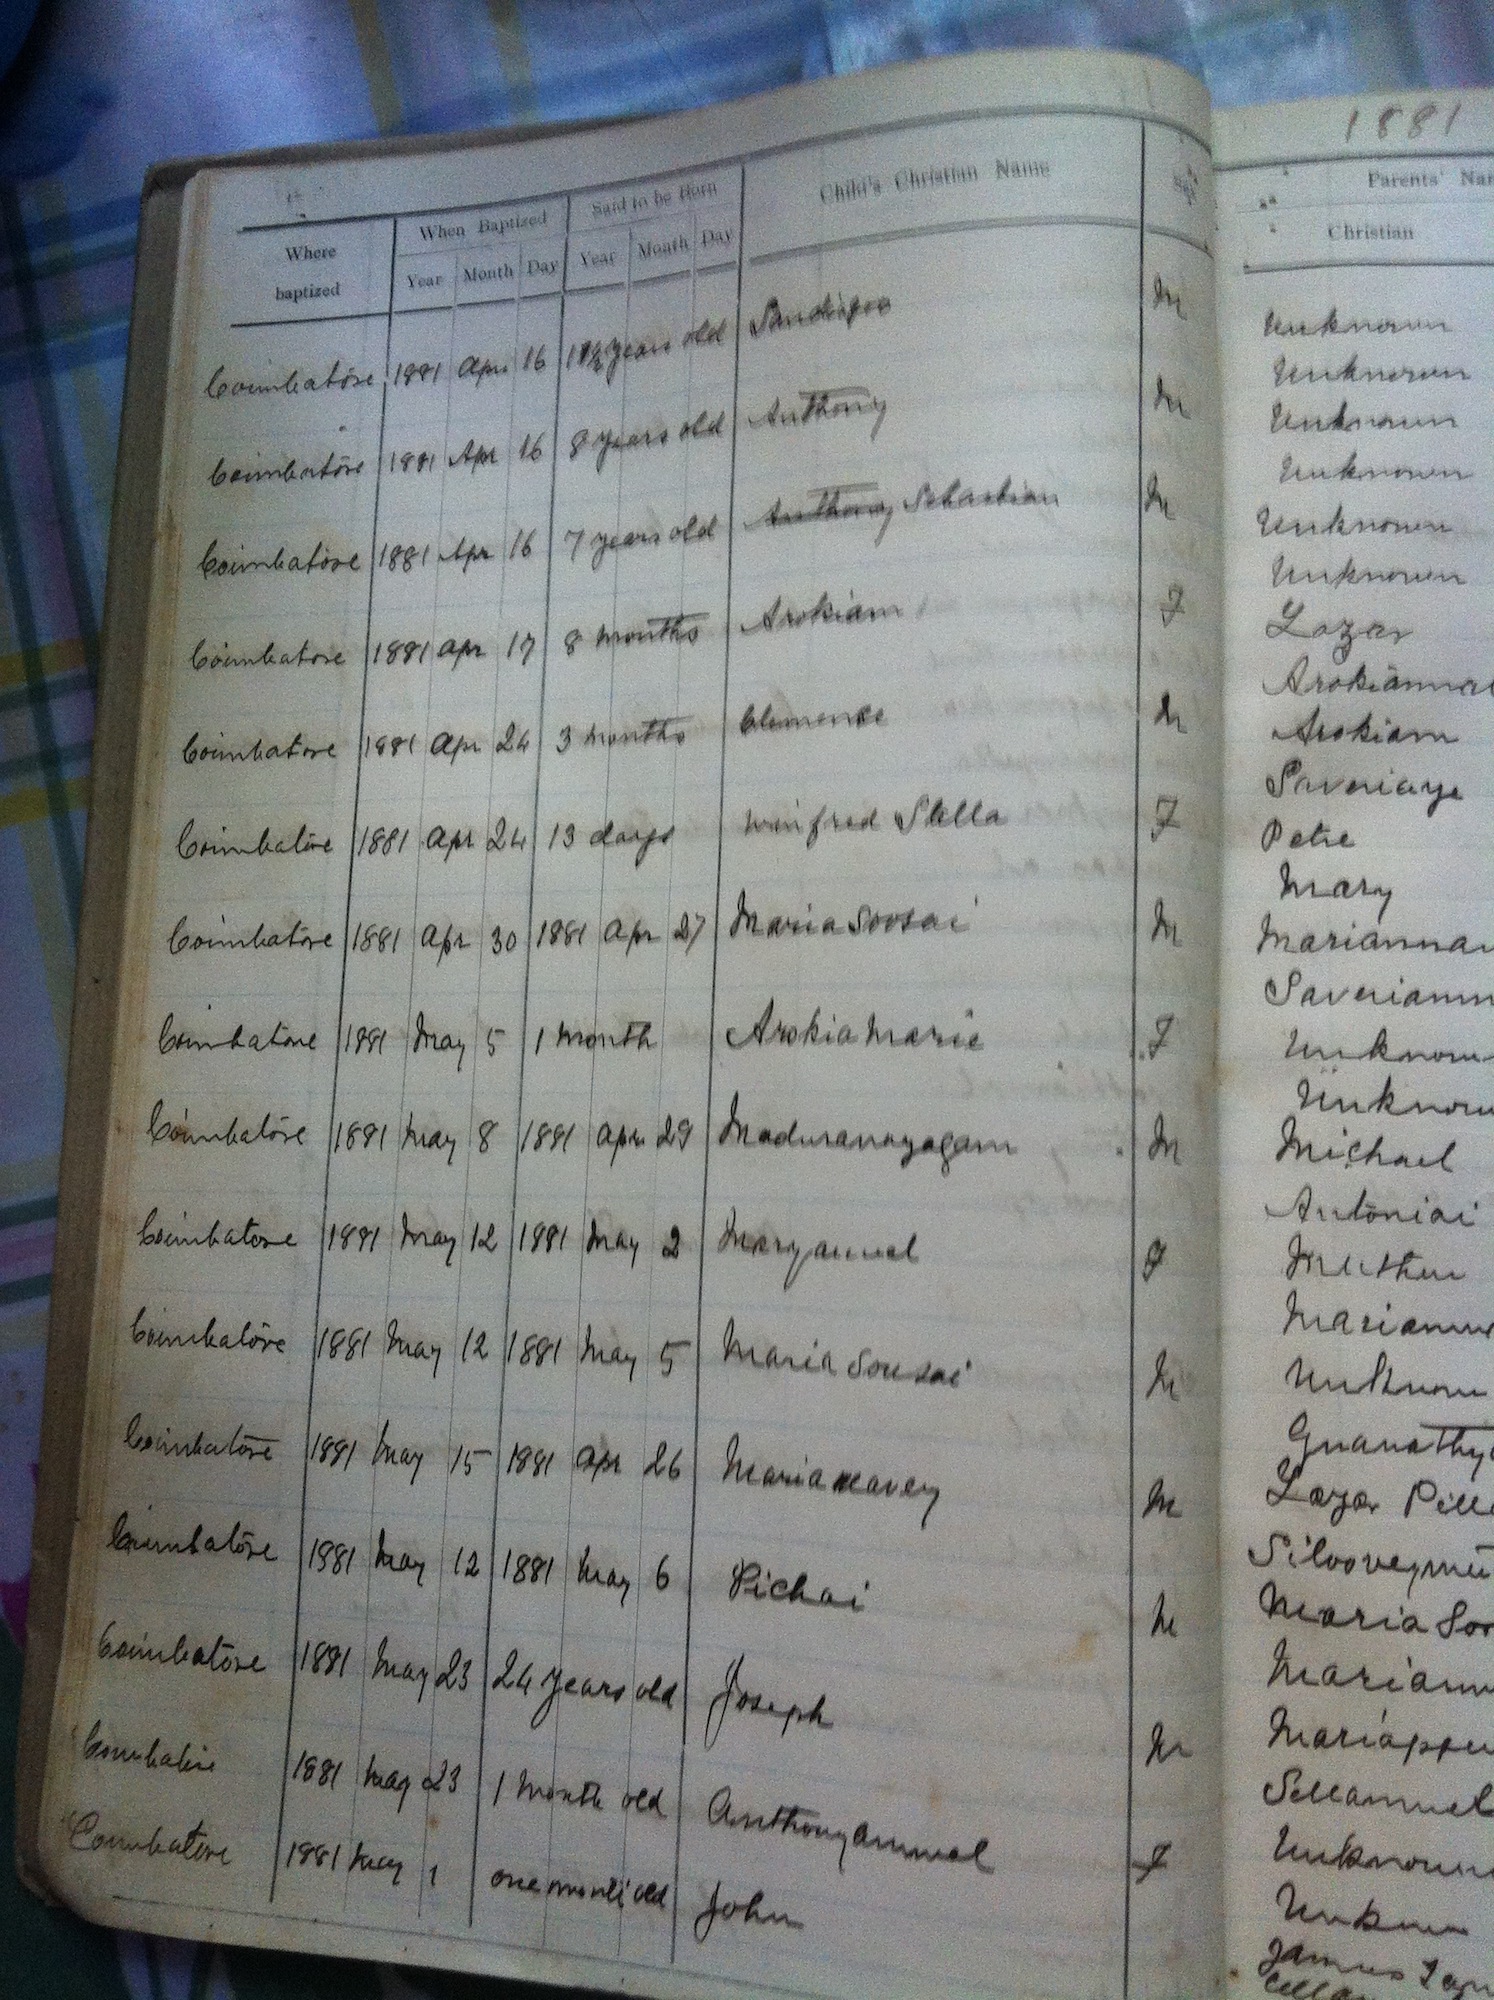 1881
Where baptized
When Baptized
Said to be Born
Child's Christian Name
Sex
Parents'
Christian
Year Month Day Year Month Day
Coimbatore 1881 Apr 16 years old M
Coimbatore 1881 Apr 16 8 years old Anthony M
Coimbatore 1881 Apr 16 7 years old Anthony Sebastian M
Coimbatore 1881 Apr 17 8 months Arokiam F
Coimbatore 1881 Apr 24 3 months Clemence M
Coimbatore 1881 Apr 24 13 days Winfred Stella F
Coimbatore 1881 Apr 30 1881 Apr 27 Maria Soosai M
Coimbatore 1881 May 5 1 month Arokia Marie F
Coimbatore 1881 May 8 1881 Apr 29 Maduranayagam M
Coimbatore 1881 May 12 1881 May 2 Maryammal F
Coimbatore 1881 May 12 1881 May 5 Maria Sousai M
Coimbatore 1881 May 15 1881 Apr 26 M
Coimbatore 1881 May 12 1881 May 6 Pichai M
Coimbatore 1881 May 23 24 years old Joseph M
Coimbatore 1881 May 23 1 month old Anthonyammal F
Coimbatore 1881 May 1 one month old John
Unknown
Unknown
Unknown
Unknown
Unknown
Unknown
Lazar
Arokiam
Saveriaye
Petre
Mary
Michael
Antoniai
Muthu
Unknown
Lazar
Maria
Unknown
Unknown